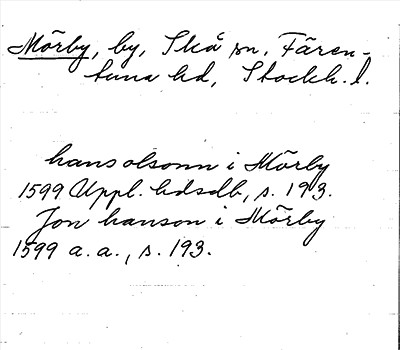 Mörby, by, Skå sn, Fären-
tuna hd, Stockh. l.
hans olsonn i Mörby
1599 Uppl. hdsdb, s. 193.
Jon hanson i Mörby
1599 a. a., s. 193.